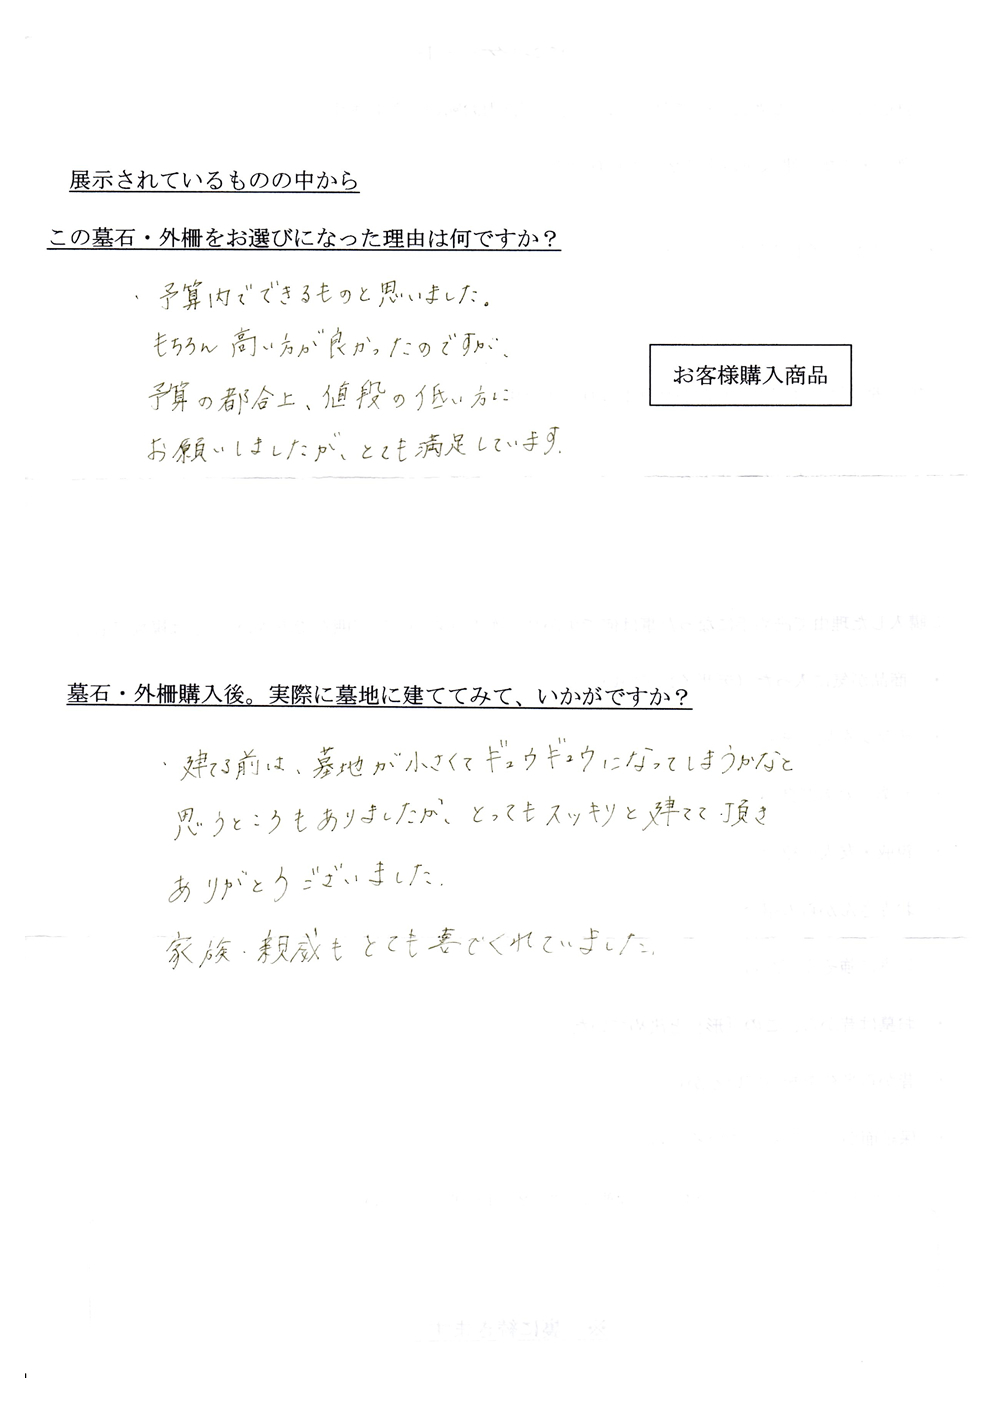 展示されているものの中から
この墓石・外柵をお選びになった理由は何ですか？
・予算内でできるものと思いました。
もちろん高い方が良かったのですが、
お客様購入商品
予算の都合上、値段の低い方に
お願いしましたが、とても満足しています.
墓石・外柵購入後。実際に墓地に建ててみて、いかがですか？
・建てる前は、墓地が小さくてギュウギュウになってしまうかなと
思うところもありましたが、とってもスッキリと建てて頂き
ありがとうございました.
家族・親戚もとても喜でくれていました.